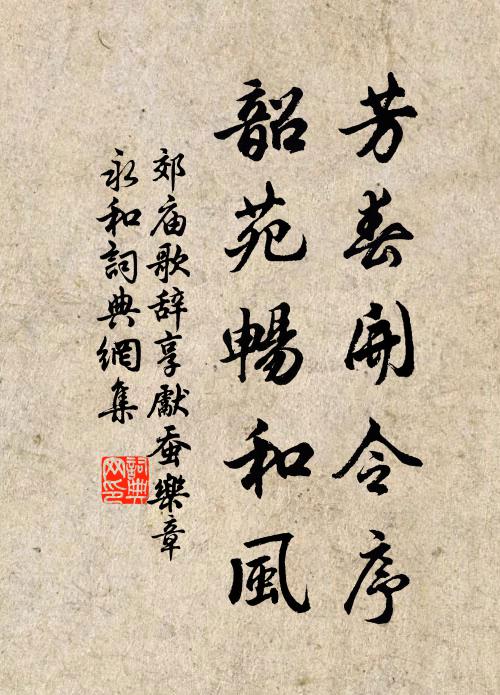 芳春開令序
韶苑暢和風
郊庙歌辞享獻蚕樂章
永和詞典網集
詞典
网印